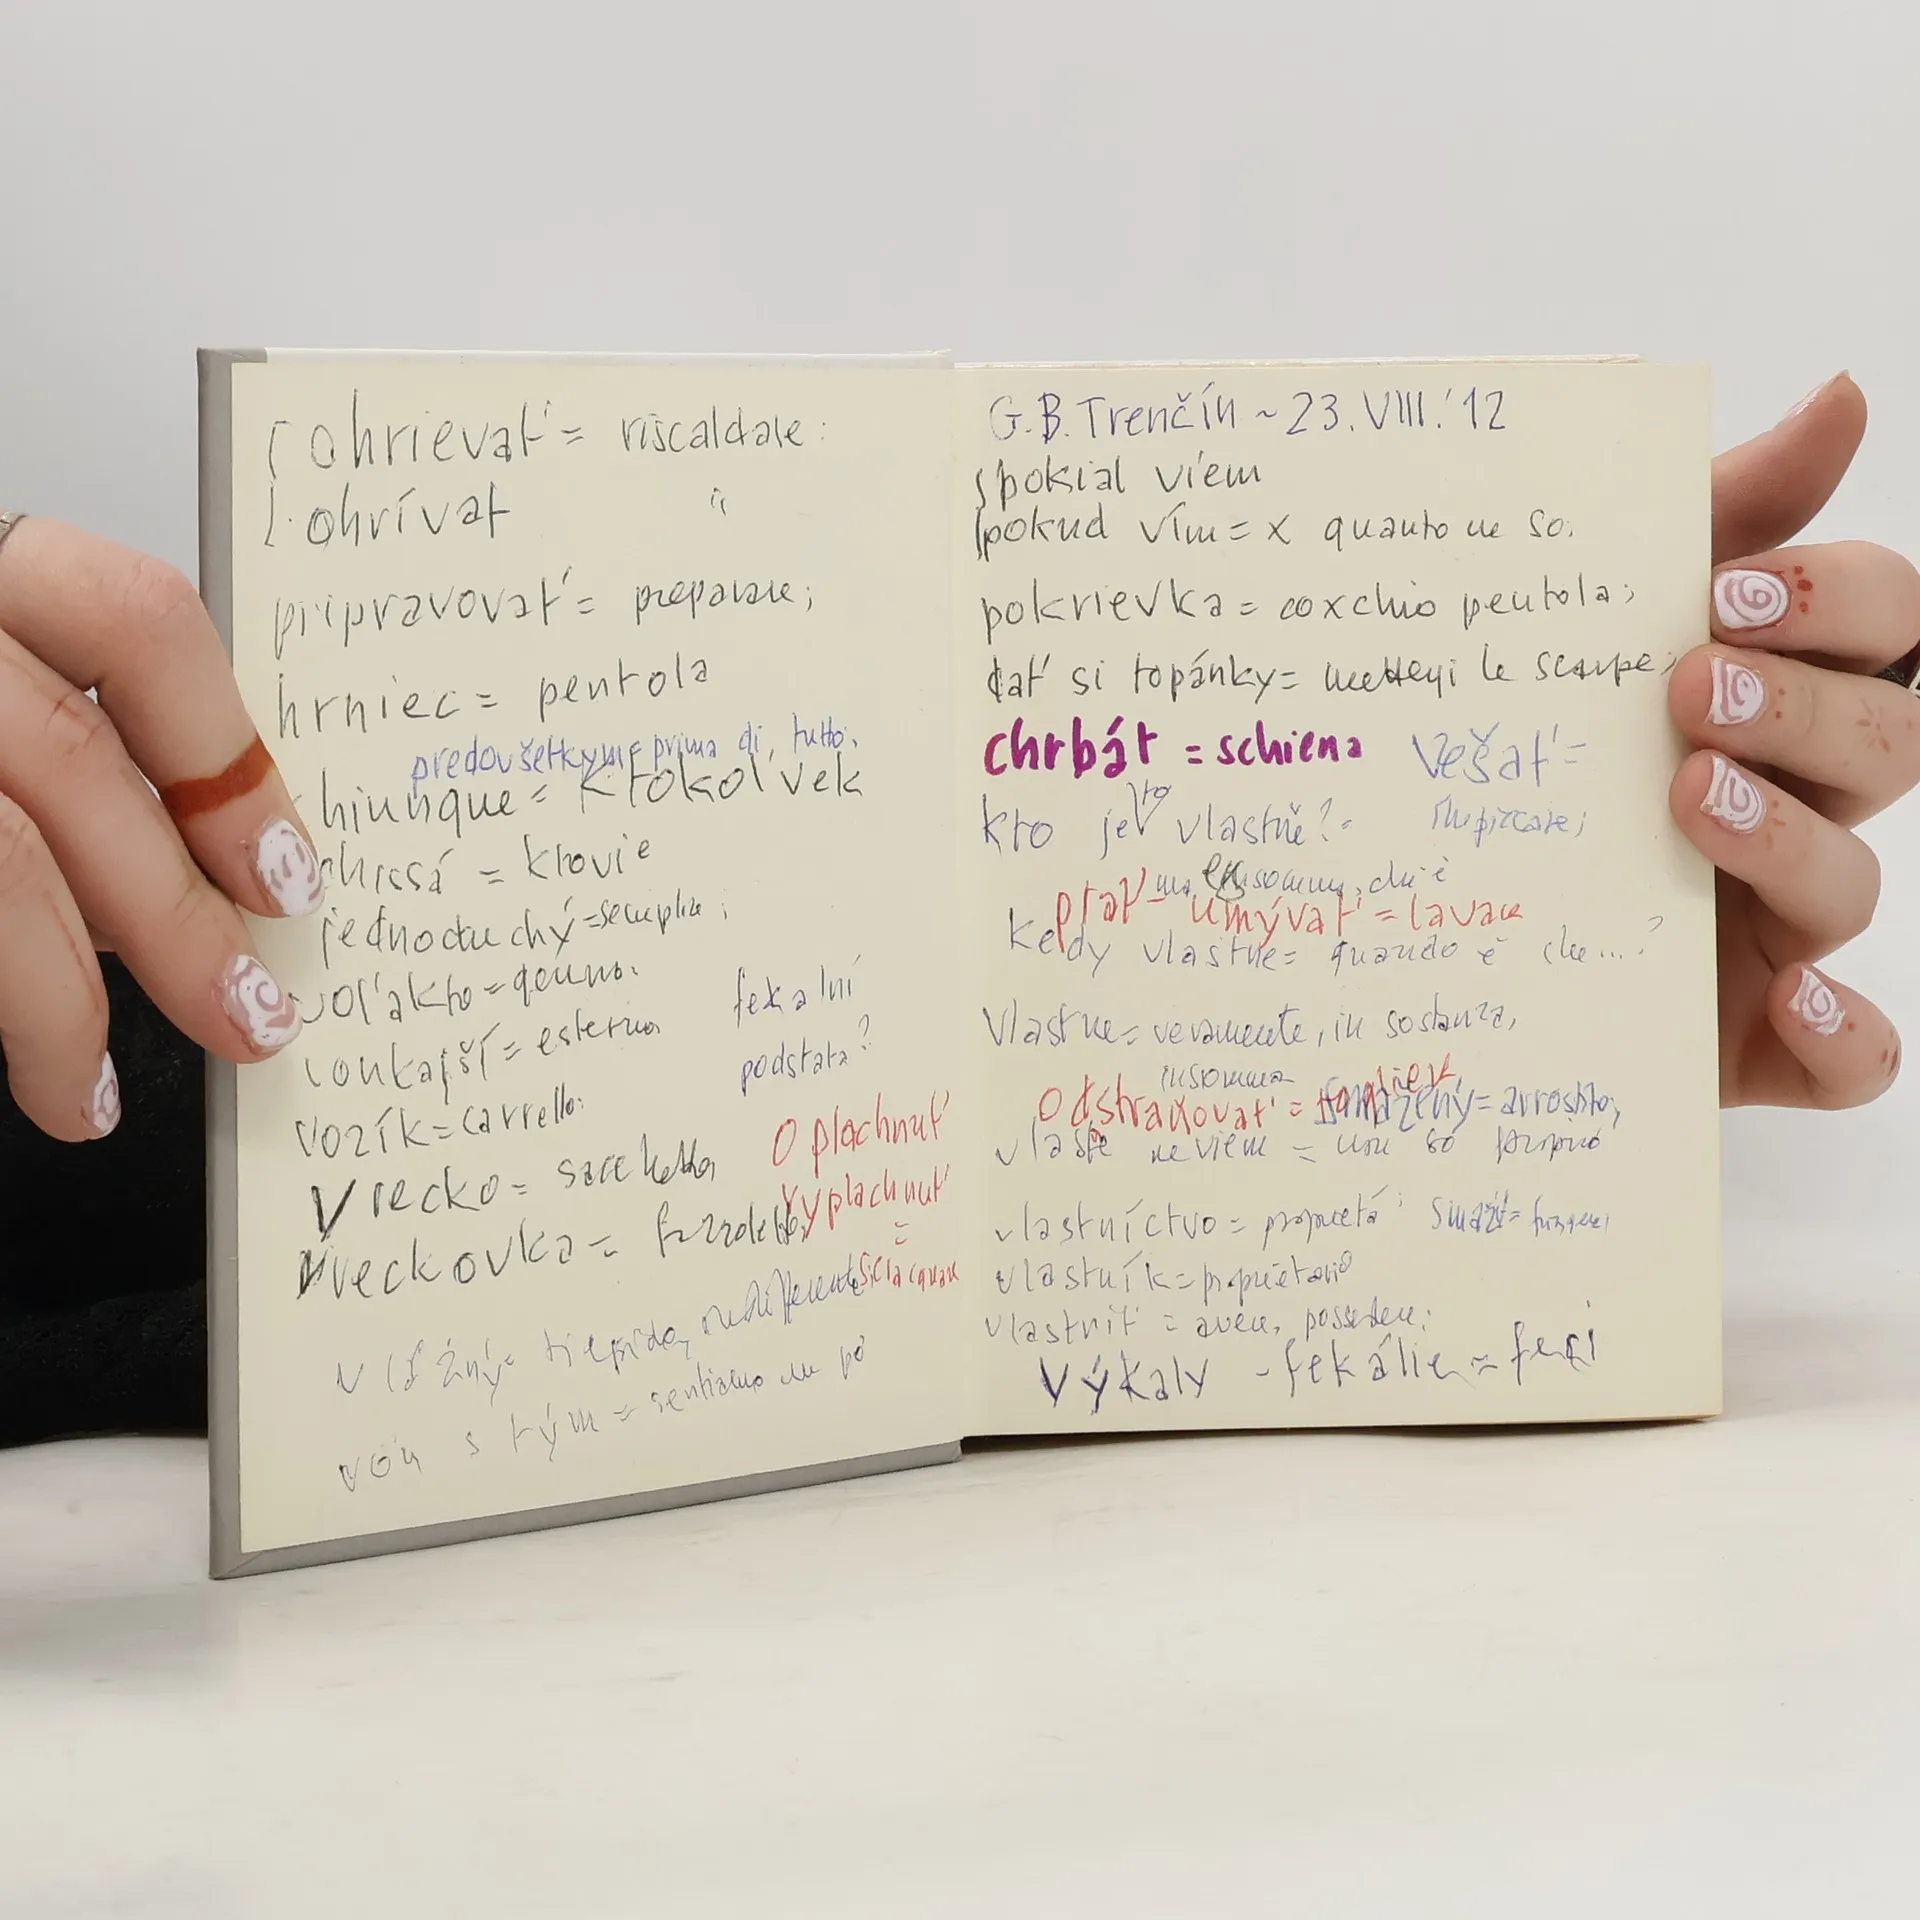 ohrievať = riscaldare:
ohrívať "
pripravovať = preparare;
hrniec = pentola
predovšetkým = prima di, tutto.
chiunque = ktokoľvek
chissá = ktovie
jednoduchý = semplice;
voľakto = qcuno.
vonkajší = esterno
fekalní
podstata?
vozík = carrello:
vrecko = sacchetto,
vreckovka = fazzoletto,
oplachnuť
vyplachnuť
=
sciacquare
vlažný = tiepido, indifferente
von s tým = sentiamo un po'
G.B. Trenčín ~ 23.VIII.'12
pokial viem
pokud vím = x quanto ne so.
pokrievka = coxchio pentola;
dať si topánky = mettersi le scarpe;
chrbát = schiena
vešať =
impiccare;
kto je to vlastně? =
ma insomma, chi è
prať – umývať = lavare
kedy vlastne = quando è che...?
Vlastne = veramente, in sostanza,
insomma
odstraňovať = togliere
smažený = arrostito;
neviem = non so proprio
vlastníctvo = proprietá;
smažiť = friggere;
vlastník = proprietario
vlastniť = avere, possedere;
výkaly - fekálie = feci